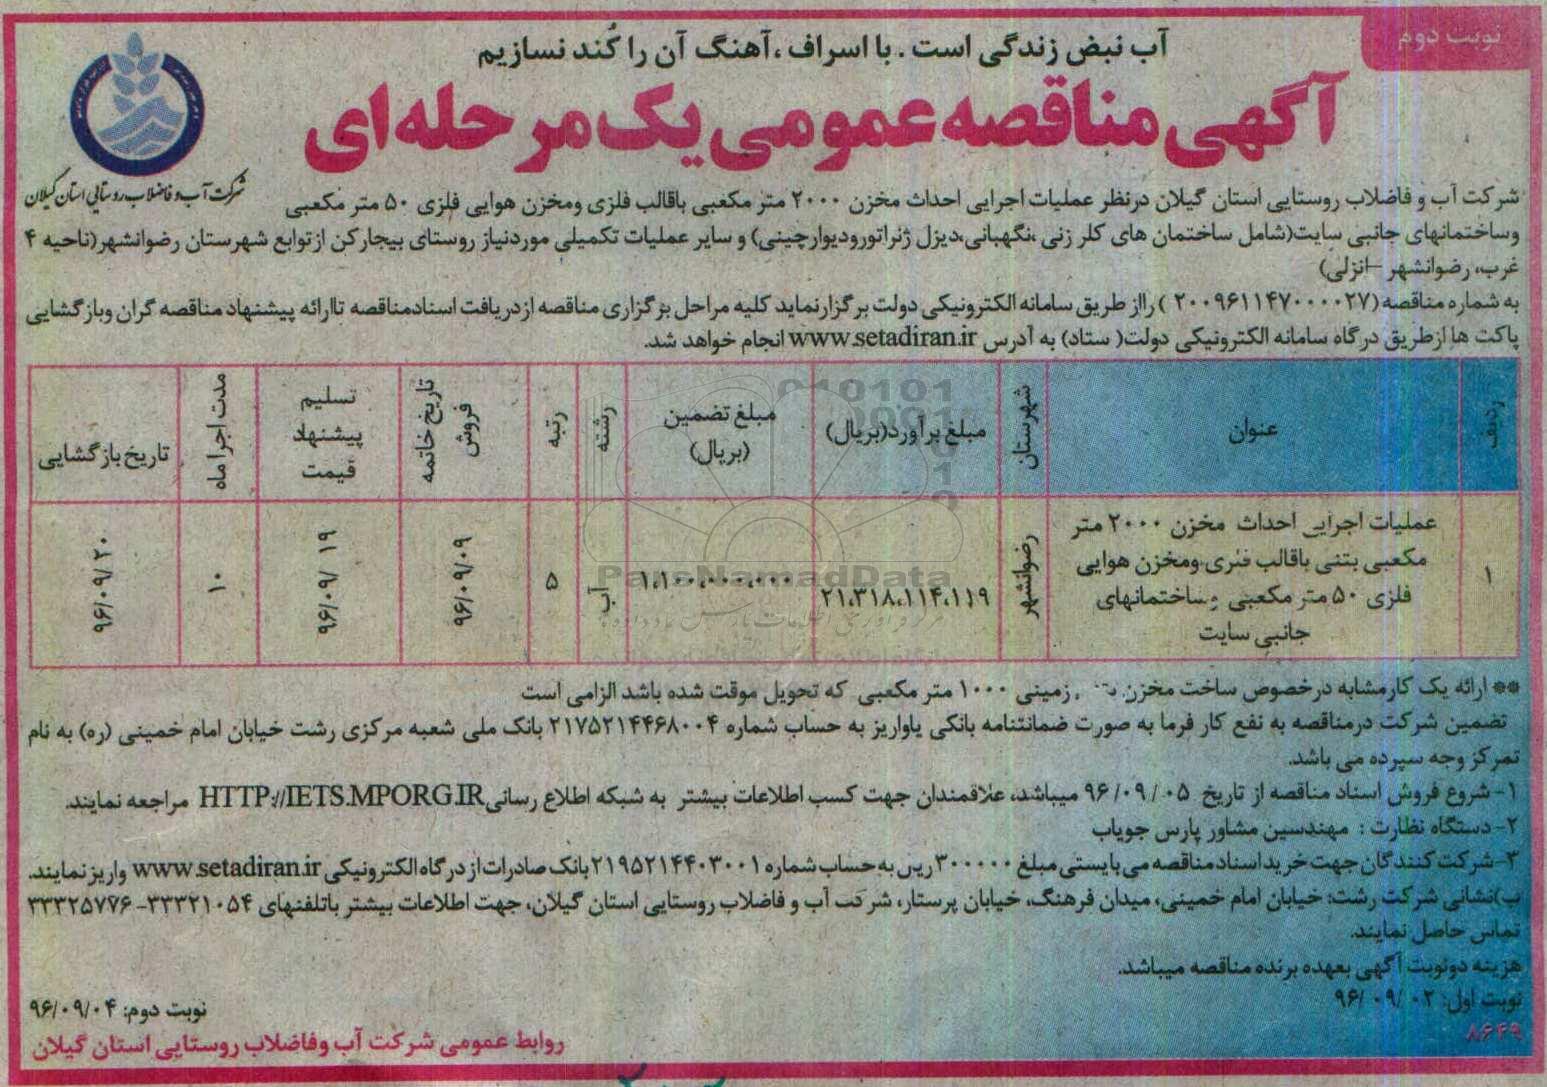 نوبت دوم
آب نبض زندگی است . با اسراف ، آهنگ آن را کُند نسازیم
آگهی مناقصه عمومی یک مرحله ای
شرکت آب و فاضلاب روستایی استان گیلان
شرکت آب و فاضلاب روستایی استان گیلان درنظر عملیات اجرایی احداث مخزن ۲۰۰۰ متر مکعبی باقالب فلزی ومخزن هوایی فلزی ۵۰ متر مکعبی
وساختمانهای جانبی سایت(شامل ساختمان های کلر زنی ،نگهبانی،دیزل ژنراتورودیوارچینی) و سایر عملیات تکمیلی موردنیاز روستای بیجارکن ازتوابع شهرستان رضوانشهر(ناحیه ۴
غرب، رضوانشهر –انزلی)
به شماره مناقصه (۲۰۰۹۶۱۱۴۷۰۰۰۰۲۷ ) رااز طریق سامانه الکترونیکی دولت برگزارنماید کلیه مراحل برگزاری مناقصه ازدریافت اسنادمناقصه تاارائه پیشنهاد مناقصه گران وبازگشایی
پاکت ها ازطریق درگاه سامانه الکترونیکی دولت( ستاد) به آدرس www.setadiran.ir انجام خواهد شد.
ردیف
عنوان
شهرستان
مبلغ برآورد(بریال)
مبلغ تضمین (بریال)
رشته
رتبه
تاریخ خاتمه فروش
تسلیم پیشنهاد قیمت
مدت اجرا ماه
تاریخ بازگشایی
۱
عملیات اجرایی احداث مخزن ۲۰۰۰ متر
مکعبی بتنی باقالب فلزی ومخزن هوایی
فلزی ۵۰ متر مکعبی وساختمانهای
جانبی سایت
رضوانشهر
۲۱،۳۱۸،۱۱۴،۱۱۹
۱،۱۰۰،۰۰۰،۰۰۰
آب
۵
۹۶/۰۹/۰۹
۹۶/۰۹/ ۱۹
۱۰
۹۶/۰۹/ ۲۰
ParsNamadData
** ارائه یک کارمشابه درخصوص ساخت مخزن زمینی ۱۰۰۰ متر مکعبی که تحویل موقت شده باشد الزامی است
تضمین شرکت درمناقصه به نفع کار فرما به صورت ضمانتنامه بانکی یاواریز به حساب شماره ۲۱۷۵۲۱۴۴۶۸۰۰۴ بانک ملی شعبه مرکزی رشت خیابان امام خمینی (ره) به نام
تمرکز وجه سپرده می باشد.
۱- شروع فروش اسناد مناقصه از تاریخ ۰۵ /۹۶/۰۹ میباشد، علاقمندان جهت کسب اطلاعات بیشتر به شبکه اطلاع رسانی HTTP://IETS.MPORG.IR مراجعه نمایند.
۲- دستگاه نظارت : مهندسین مشاور پارس جویاب
۳-شرکت کنندگان جهت خرید اسناد مناقصه می بایستی مبلغ ۳۰۰۰۰۰ ریال به حساب شماره ۲۱۹۵۲۱۴۴۰۳۰۰۱ بانک صادرات از درگاه الکترونیکی www.setadiran.ir واریز نمایند.
ب)نشانی شرکت رشت: خیابان امام خمینی، میدان فرهنگ، خیابان پرستار، شرکت آب و فاضلاب روستایی استان گیلان، جهت اطلاعات بیشتر باتلفنهای ۳۳۳۲۱۰۵۴- ۳۳۳۲۵۷۷۶
تماس حاصل نمایند.
هزینه دونوبت آگهی بعهده برنده مناقصه میباشد.
نوبت اول: ۰۲ /۰۹ /۹۶
نوبت دوم: ۹۶/۰۹/۰۴
۸۶۴۹
روابط عمومی شرکت آب وفاضلاب روستایی استان گیلان